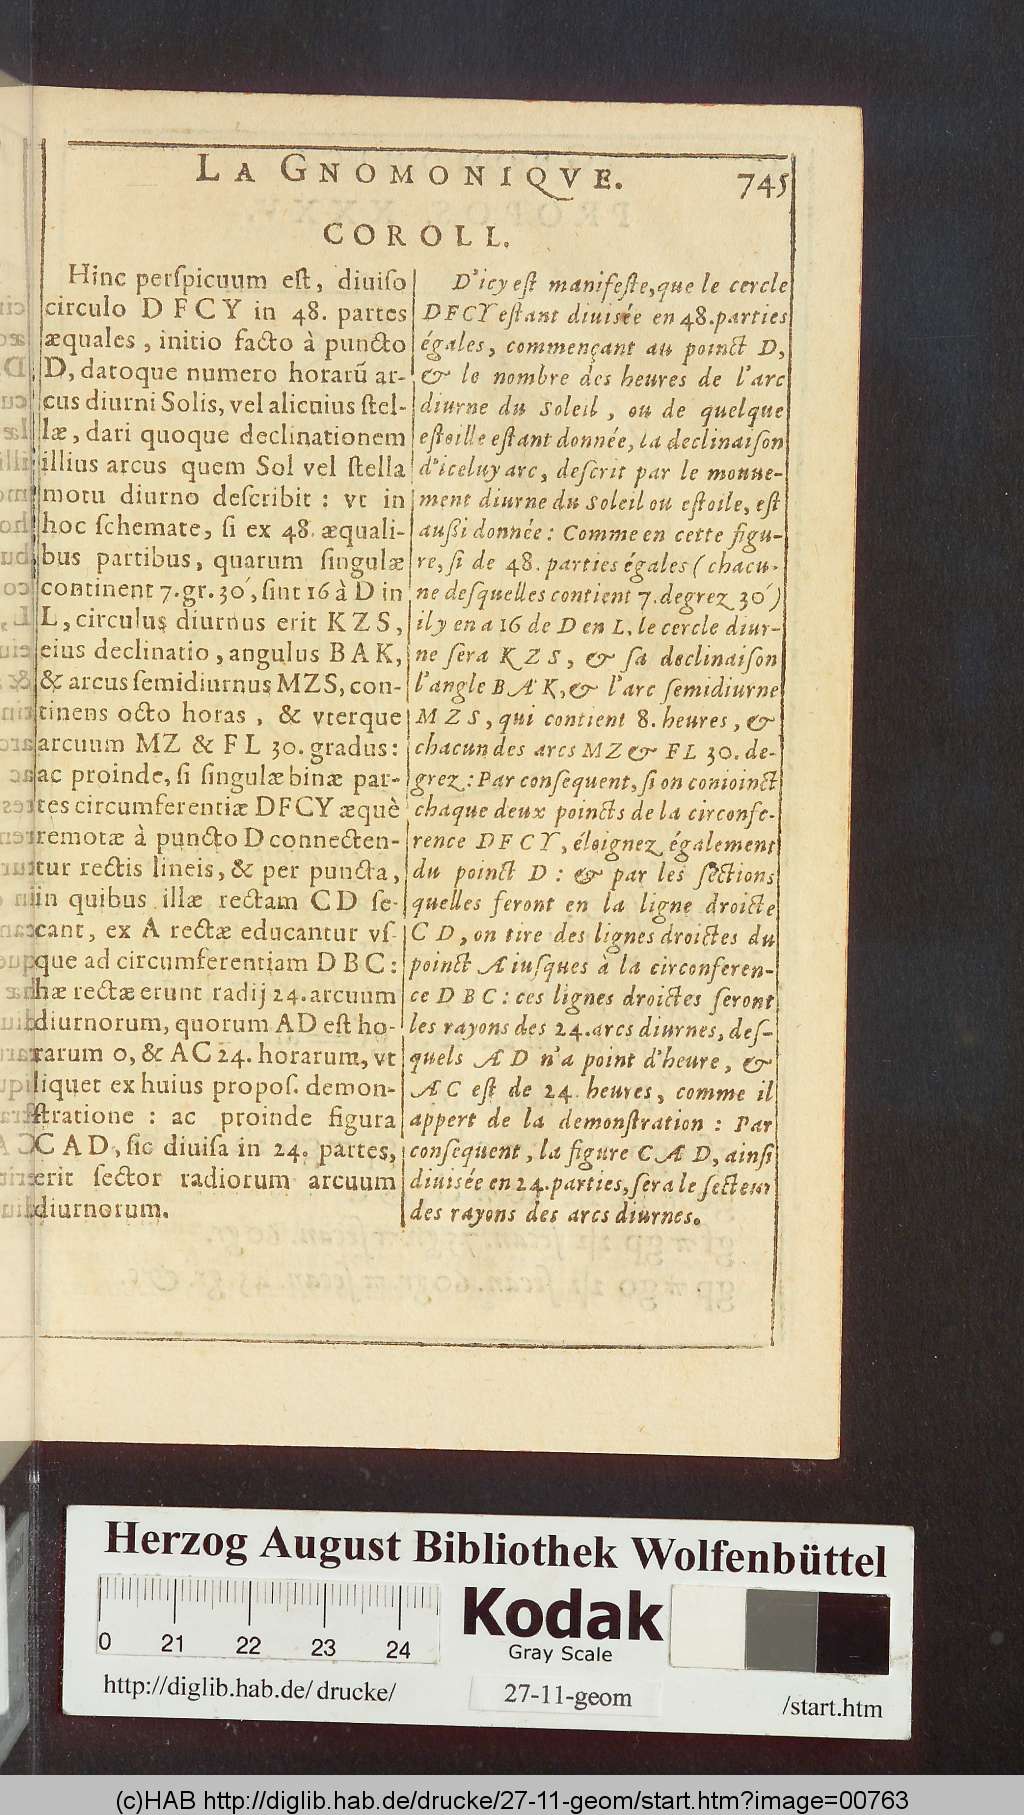 LA GNOMONIQVE.
745
COROLL.
Hinc perſpicuum eſt, diuiſo
circulo D F C Y in 48. partes
æquales, initio facto à puncto
D, datoque numero horarū ar-
cus diurni Solis, vel alicuius ſtel-
læ, dari quoque declinationem
illius arcus quem Sol vel ſtella
motu diurno deſcribit : vt in
hoc ſchemate, ſi ex 48. æquali-
bus partibus, quarum ſingulæ
continent 7. gr. 30′, ſint 16 à D in
L, circulus diurnus erit K Z S,
eius declinatio, angulus B A K,
& arcus ſemidiurnus MZS, con-
tinens octo horas, & vterque
arcuum MZ & F L 30. gradus:
ac proinde, ſi ſingulæ binæ par-
tes circumferentiæ DFCY æquè
remotæ à puncto D connecten-
tur rectis lineis, & per puncta,
in quibus illæ rectam C D ſe-
cant, ex A rectæ educantur vſ-
que ad circumferentiam D B C:
hæ rectæ erunt radij 24. arcuum
diurnorum, quorum AD eſt ho-
rarum 0, & AC 24. horarum, vt
liquet ex huius propoſ. demon-
ſtratione : ac proinde figura
C A D, ſic diuiſa in 24. partes,
erit ſector radiorum arcuum
diurnorum.
D'icy eſt manifeſte, que le cercle
DFCY eſtant diuisée en 48. parties
égales, commençant au poinct D,
& le nombre des heures de l'arc
diurne du Soleil, ou de quelque
eſtoille eſtant donnée, la declinaiſon
d'iceluy arc, deſcrit par le mouue-
ment diurne du Soleil ou eſtoile, eſt
außi donnée : Comme en cette figu-
re, ſi de 48. parties égales ( chacu-
ne deſquelles contient 7. degrez 30′)
il y en a 16 de D en L, le cercle diur-
ne ſera K Z S, & ſa declinaiſon
l'angle B A K, & l'arc ſemidiurne
M Z S, qui contient 8. heures, &
chacun des arcs M Z & F L 30. de-
grez : Par conſequent, ſi on conioinct
chaque deux poincts de la circonfe-
rence D F C Y, éloignez également
du poinct D : & par les ſections
quelles feront en la ligne droicte
C D, on tire des lignes droictes du
poinct A iuſques à la circonferen-
ce D B C : ces lignes droictes ſeront
les rayons des 24. arcs diurnes, deſ-
quels A D n'a point d'heure, &
A C eſt de 24 heures, comme il
appert de la demonſtration : Par
conſequent, la figure C A D, ainſi
diuisée en 24. parties, ſera le ſecteur
des rayons des arcs diurnes.
Herzog August Bibliothek Wolfenbüttel
0 21 22 23 24
Kodak
Gray Scale
http://diglib.hab.de/drucke/
27-11-geom
/start.htm
(c)HAB http://diglib.hab.de/drucke/27-11-geom/start.htm?image=00763